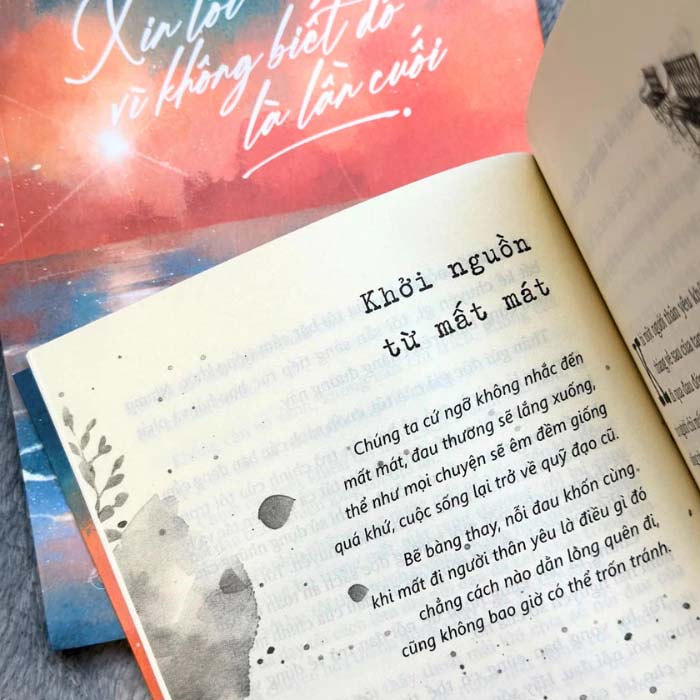 Xin lỗi
vì không biết đó
là lần cuối
Khởi nguồn
từ mất mát
Chúng ta cứ ngỡ không nhắc đến
mất mát, đau thương sẽ lắng xuống,
thể như mọi chuyện sẽ êm đềm giống
quá khứ, cuộc sống lại trở về quỹ đạo cũ.
Bẽ bàng thay, nỗi đau khốn cùng
khi mất đi người thân yêu là điều gì đó
chẳng cách nào dằn lòng quên đi,
cũng không bao giờ có thể trốn tránh.